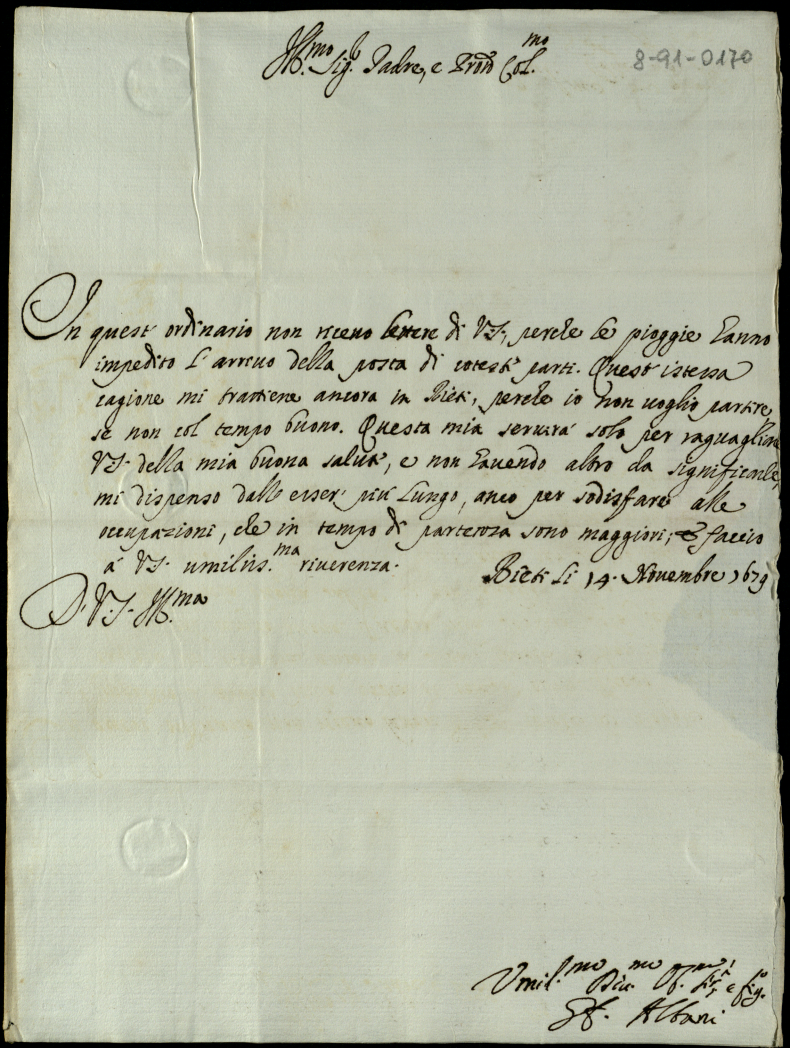 Ill.mo Sig.r Padre, e Pron̄ Col.mo
8-91-0170
In quest' ordinario non riceuo lettere di VS, perche le pioggie hanno
impedito l'arriuo della posta di cotesti parti. Quest' istessa
cagione mi trattiene ancora in Rieti, perche io non uoglio partire,
se non col tempo buono. Questa mia seruirà solo per raguagliare
VS. della mia buona salute, e non hauendo altro da significarle,
mi dispenso dall' esser' più lungo, anco per sodisfare alle
occupazioni, che in tempo di partenza sono maggiori, e faccio
à VS. umiliss.ma riuerenza.
Rieti li 14. Novembre 1679
Di V.S. Ill.ma
Vmil.mo Diu.mo e fig.o
Gf. Albani